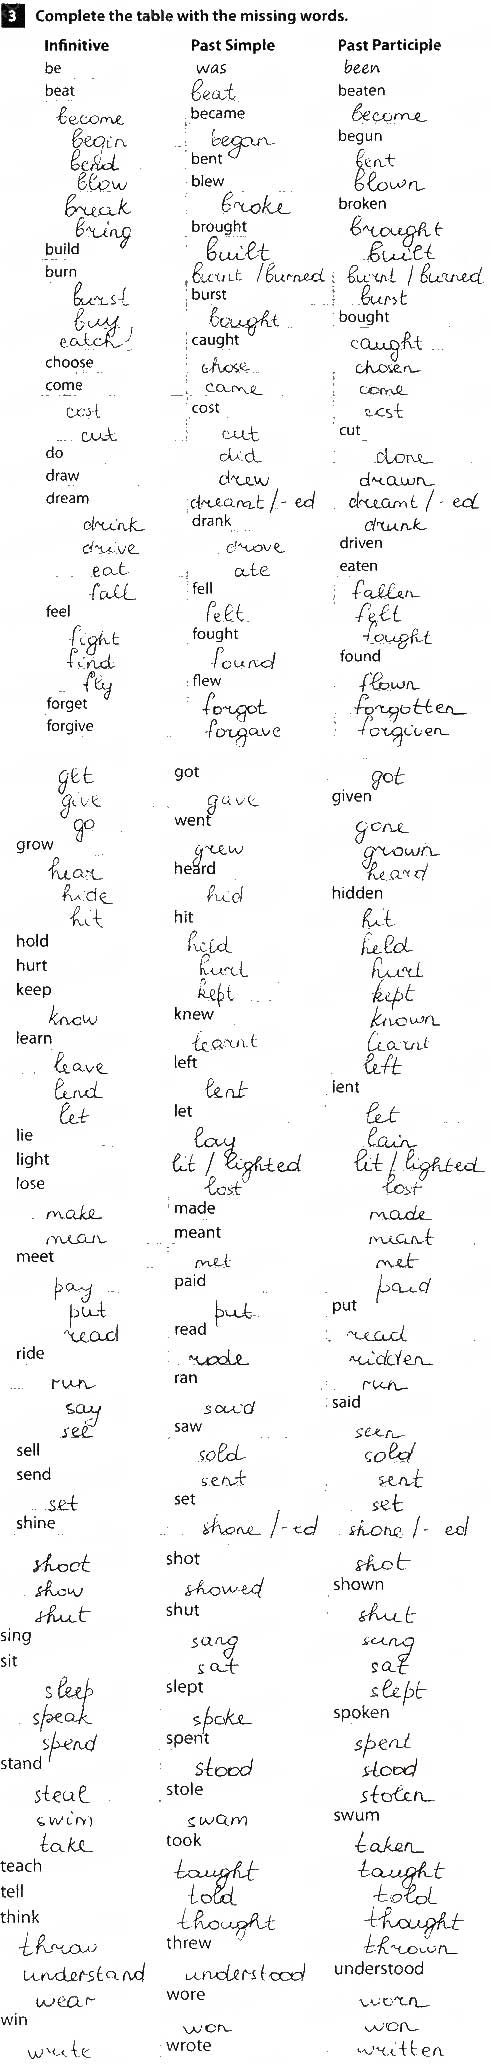 3 Complete the table with the missing words.
Infinitive Past Simple Past Participle
be was been
beat beat beaten
become became become
begin began begun
bend bent bent
blow blew blown
break broke broken
bring brought brought
build built built
burn burnt / burned burnt / burned
burst burst burst
buy bought bought
catch caught caught
choose chose chosen
come came come
cost cost cost
cut cut cut
do did done
draw drew drawn
dream dreamt / - ed dreamt / - ed
drink drank drunk
drive drove driven
eat ate eaten
fall fell fallen
feel felt felt
fight fought fought
find found found
fly flew flown
forget forgot forgotten
forgive forgave forgiven
get got got
give gave given
go went gone
grow grew grown
hear heard heard
hide hid hidden
hit hit hit
hold held held
hurt hurt hurt
keep kept kept
know knew known
learn learnt learnt
leave left left
lend lent lent
let let let
lie lay lain
light lit / lighted lit / lighted
lose lost lost
make made made
mean meant meant
meet met met
pay paid paid
put put put
read read read
ride rode ridden
run ran run
say said said
see saw seen
sell sold sold
send sent sent
set set set
shine shone / - ed shone / - ed
shoot shot shot
show showed shown
shut shut shut
sing sang sung
sit sat sat
sleep slept slept
speak spoke spoken
spend spent spent
stand stood stood
steal stole stolen
swim swam swum
take took taken
teach taught taught
tell told told
think thought thought
throw threw thrown
understand understood understood
wear wore worn
win won won
write wrote written